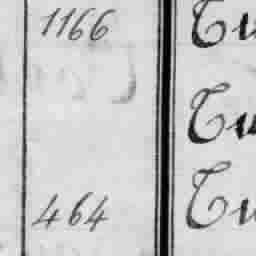 1166 Tu
Tu
464 Tu